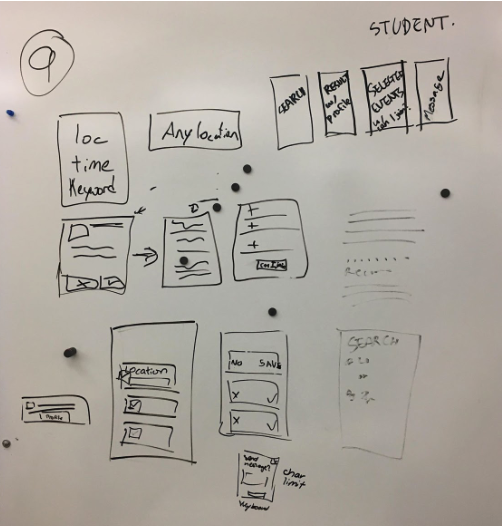 9
STUDENT.
SEARCH
RESULT
w/
profile
SELECTED
EVENTS
Message
loc
time
Keyword
Any location
Confirm
Recom
SEARCH
Location
NO SAVE
X ✓
X ✓
Profile
send
message?
char
limit
Keyboard